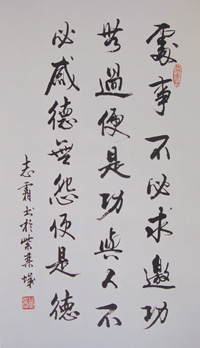 處事不必求邀功
無過便是功與人不
必感德無怨便是德
志霸书於紫来墄